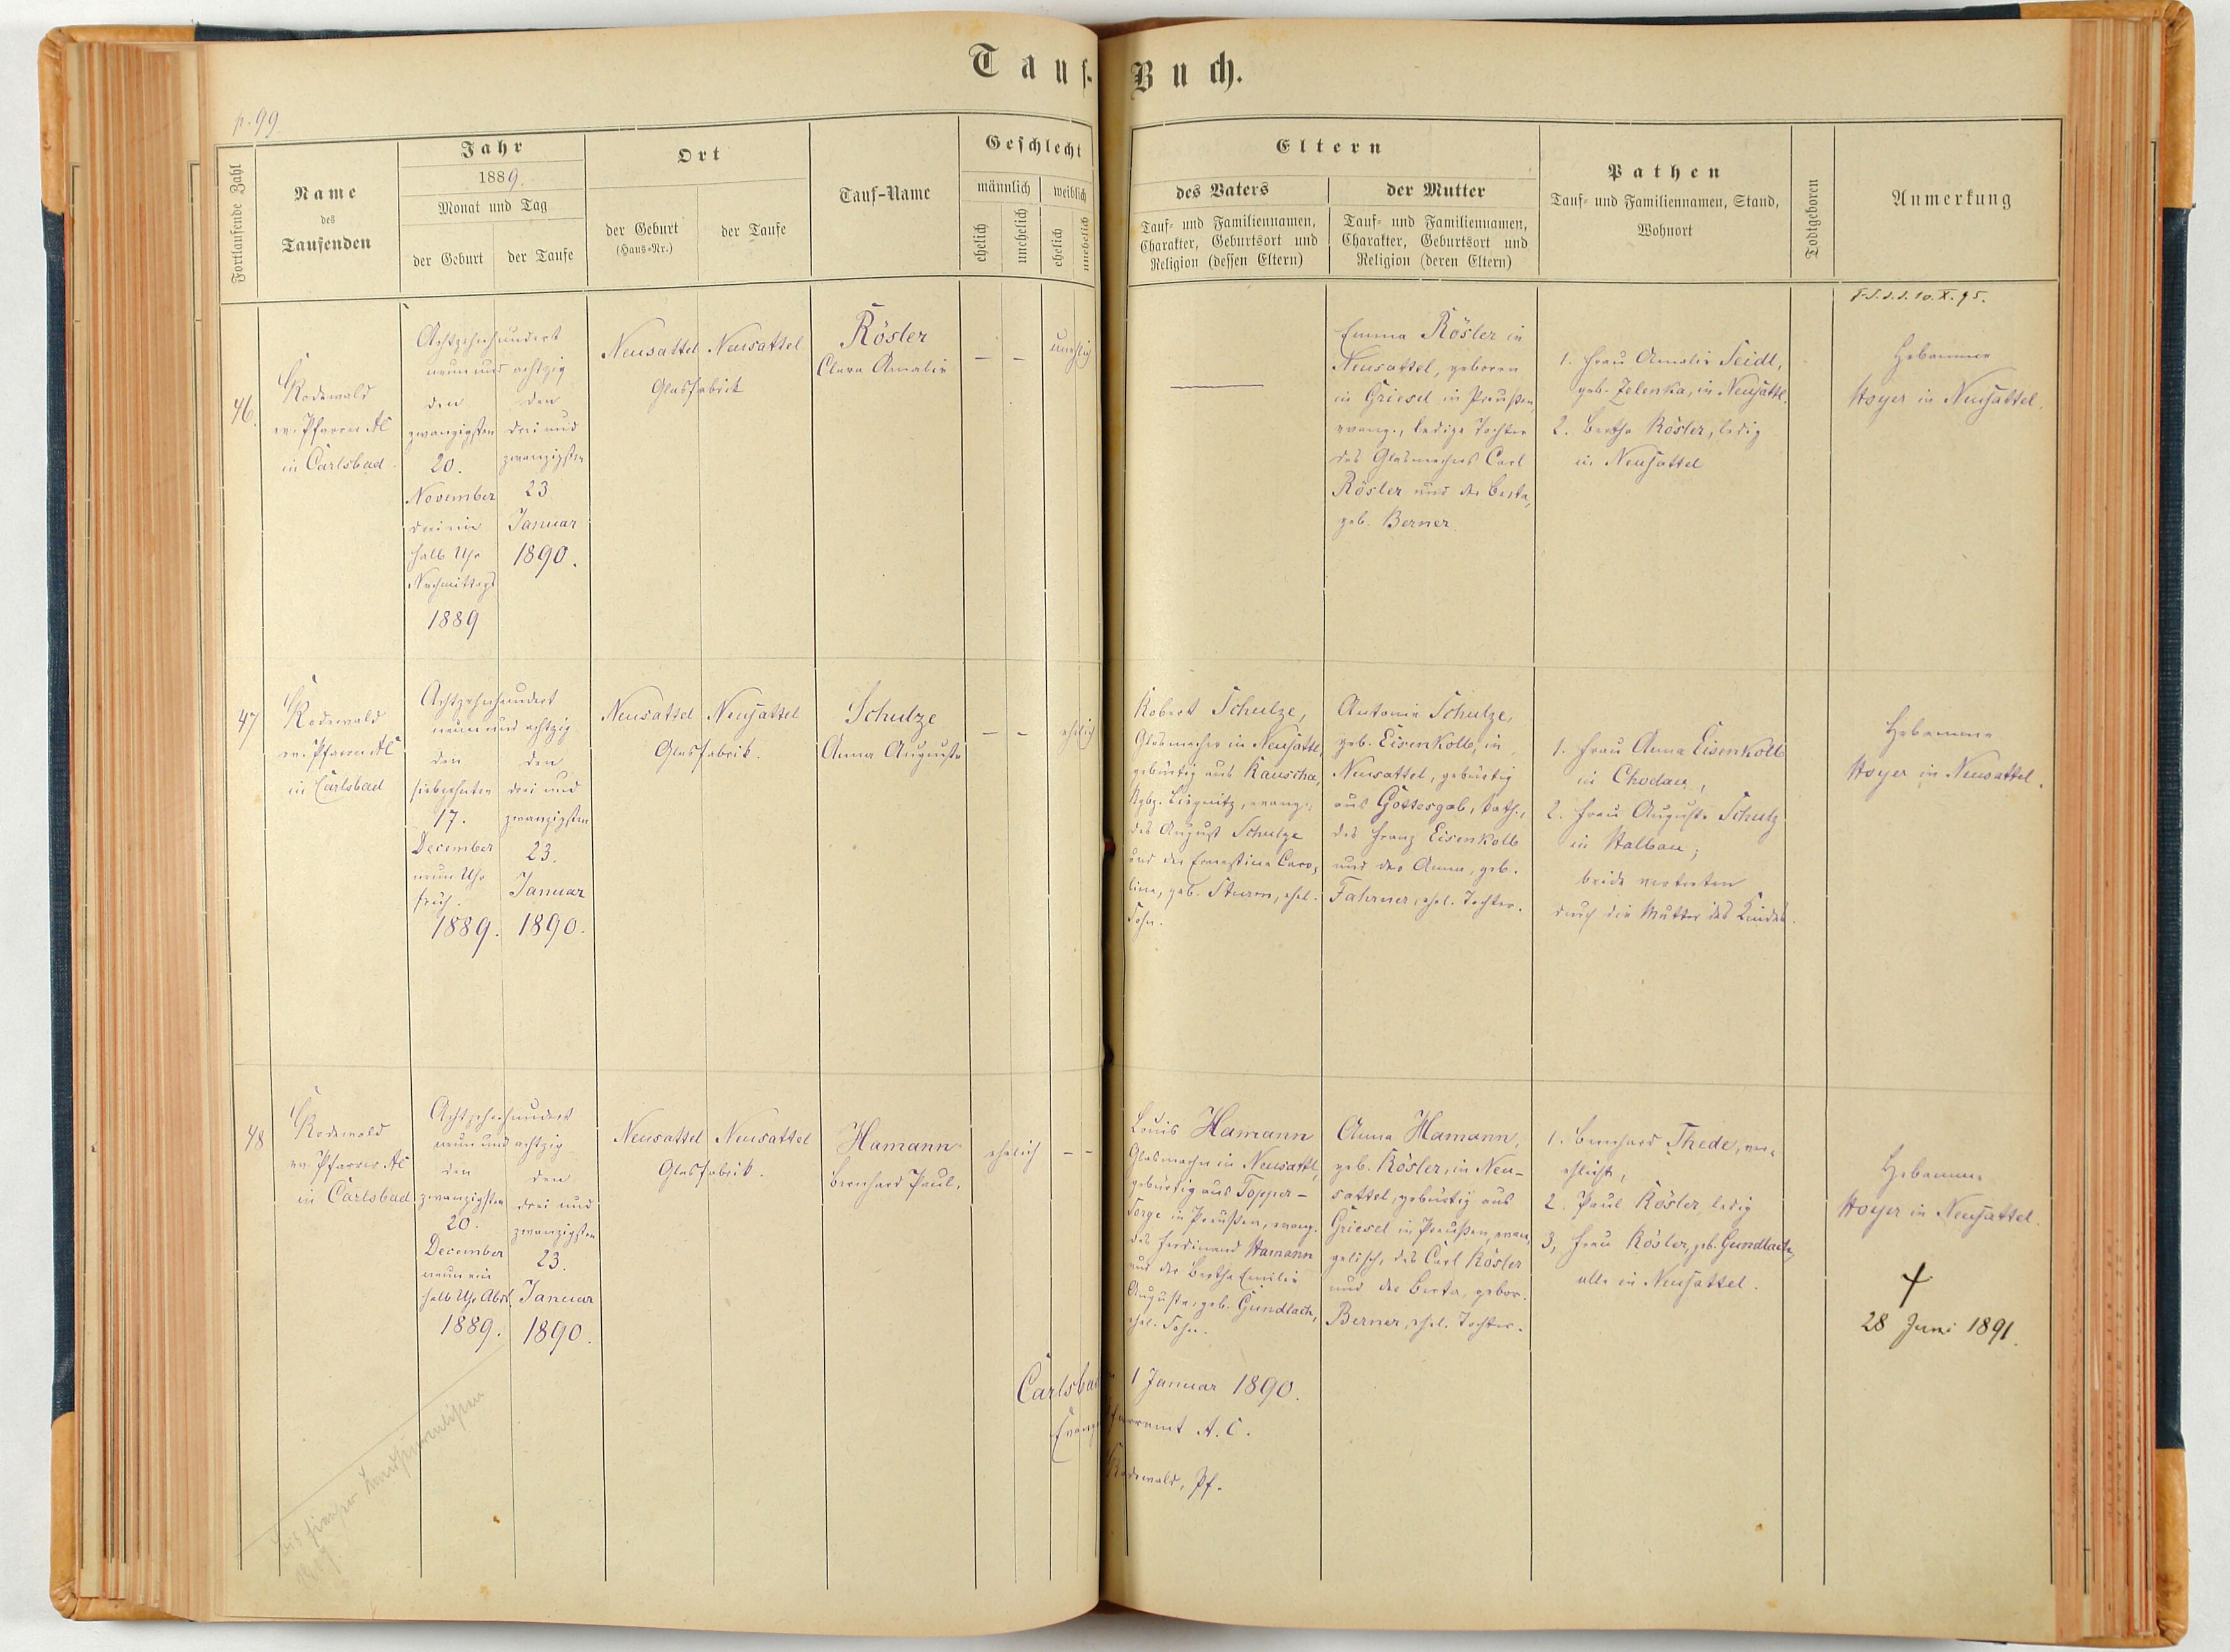 Tauf-Buch.
p. 99
Fortlaufende Zahl
Name
des
Taufenden
Jahr
1889.
Monat und Tag
der Geburt
der Taufe
Ort
der Geburt
(Haus-Nr.)
der Taufe
Tauf-Name
Geschlecht
männlich
weiblich
ehelich
unehelich
ehelich
unehelich
Eltern
des Vaters
Tauf- und Familiennamen,
Charakter, Geburtsort und
Religion (dessen Eltern)
der Mutter
Tauf- und Familiennamen,
Charakter, Geburtsort und
Religion (deren Eltern)
Pathen
Tauf- und Familiennamen, Stand,
Wohnort
Todtgeboren
Anmerkung
46.
Rodewald
ev. Pfarrer AC
in Carlsbad.
Achtzehnhundert
neun und achtzig
den
zwanzigsten
20.
November
drei ein
halb Uhr
Nachmittags
1889
den
drei und
zwanzigsten
23
Januar
1890.
Neusattel
Neusattel
Glasfabrik
Rösler
Clara Amalie
—
—
unehelich
Emma Rösler in
Neusattel, geboren
in Griesel in Preußen,
evang., ledige Tochter
des Glasmachers Carl
Rösler und der Berta,
geb. Berner.
1. Frau Amalie Seidl,
geb. Zelenka, in Neusattl.
2. Bertha Rösler, ledig
in Neusattel
10.X.95.
Hebamme
Hoyer in Neusattel.
47
Rodewald
ev. Pfarrer AC
in Carlsbad
Achtzehnhundert
neun und achtzig
den
siebzehnten
17.
December
neun Uhr
früh.
1889.
den
drei und
zwanzigsten
23.
Januar
1890.
Neusattel
Neusattel
Glasfabrik.
Schulze
Anna Auguste
—
—
ehelich
Robert Schulze,
Glasmacher in Neusattl,
gebürtig aus Rauscha,
Rgbz. Liegnitz, evang.,
des August Schulze
und der Ernestine Caro-
line, geb. Sturm, ehel.
Sohn.
Antonie Schulze,
geb. Eisenkolb, in
Neusattel, gebürtig
aus Gottesgab, kath.,
des Franz Eisenkolb
und der Anna, geb.
Fahrner, ehel. Tochter.
1. Frau Anna Eisenkolb
in Chodau,
2. Frau Auguste Schulz
in Halbau;
beide vertreten
durch die Mutter des Kindes.
Hebamme
Hoyer in Neusattel.
48
Rodewald
ev. Pfarrer AC
in Carlsbad
Achtzehnhundert
neun und achtzig
den
zwanzigsten
20.
December
neun ein
halb Uhr Abds.
1889.
den
drei und
zwanzigsten
23.
Januar
1890.
Neusattel
Neusattel
Glasfabrik.
Hamann
Bernhard Paul.
ehelich
—
—
Louis Hamann
Glasmacher in Neusattl,
gebürtig aus Topper-
Sorge in Preußen, evang.
des Ferdinand Hamann
und der Bertha Emilie
Auguste, geb. Gundlach,
ehel. Sohn.
Anna Hamann,
geb. Rösler, in Neu-
sattel, gebürtig aus
Griesel in Preußen, evan-
gelisch, des Carl Rösler
und der Berta, gebor.
Berner, ehel. Tochter.
1. Bernhard Thede, ver-
ehlicht,
2. Paul Rösler, ledig
3, Frau Rösler, gb. Gundlach,
alle in Neusattel.
Hebamme
Hoyer in Neusattel.
†
28 Juni 1891.
Carlsbad 1 Januar 1890.
Evang. Pfarramt A.C.
Rodewald, Pf.